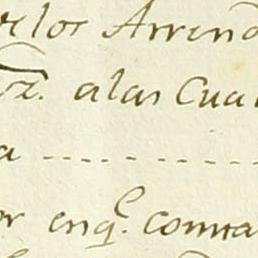 velos Arren
rz. alas Cua
a
or enq.e comra